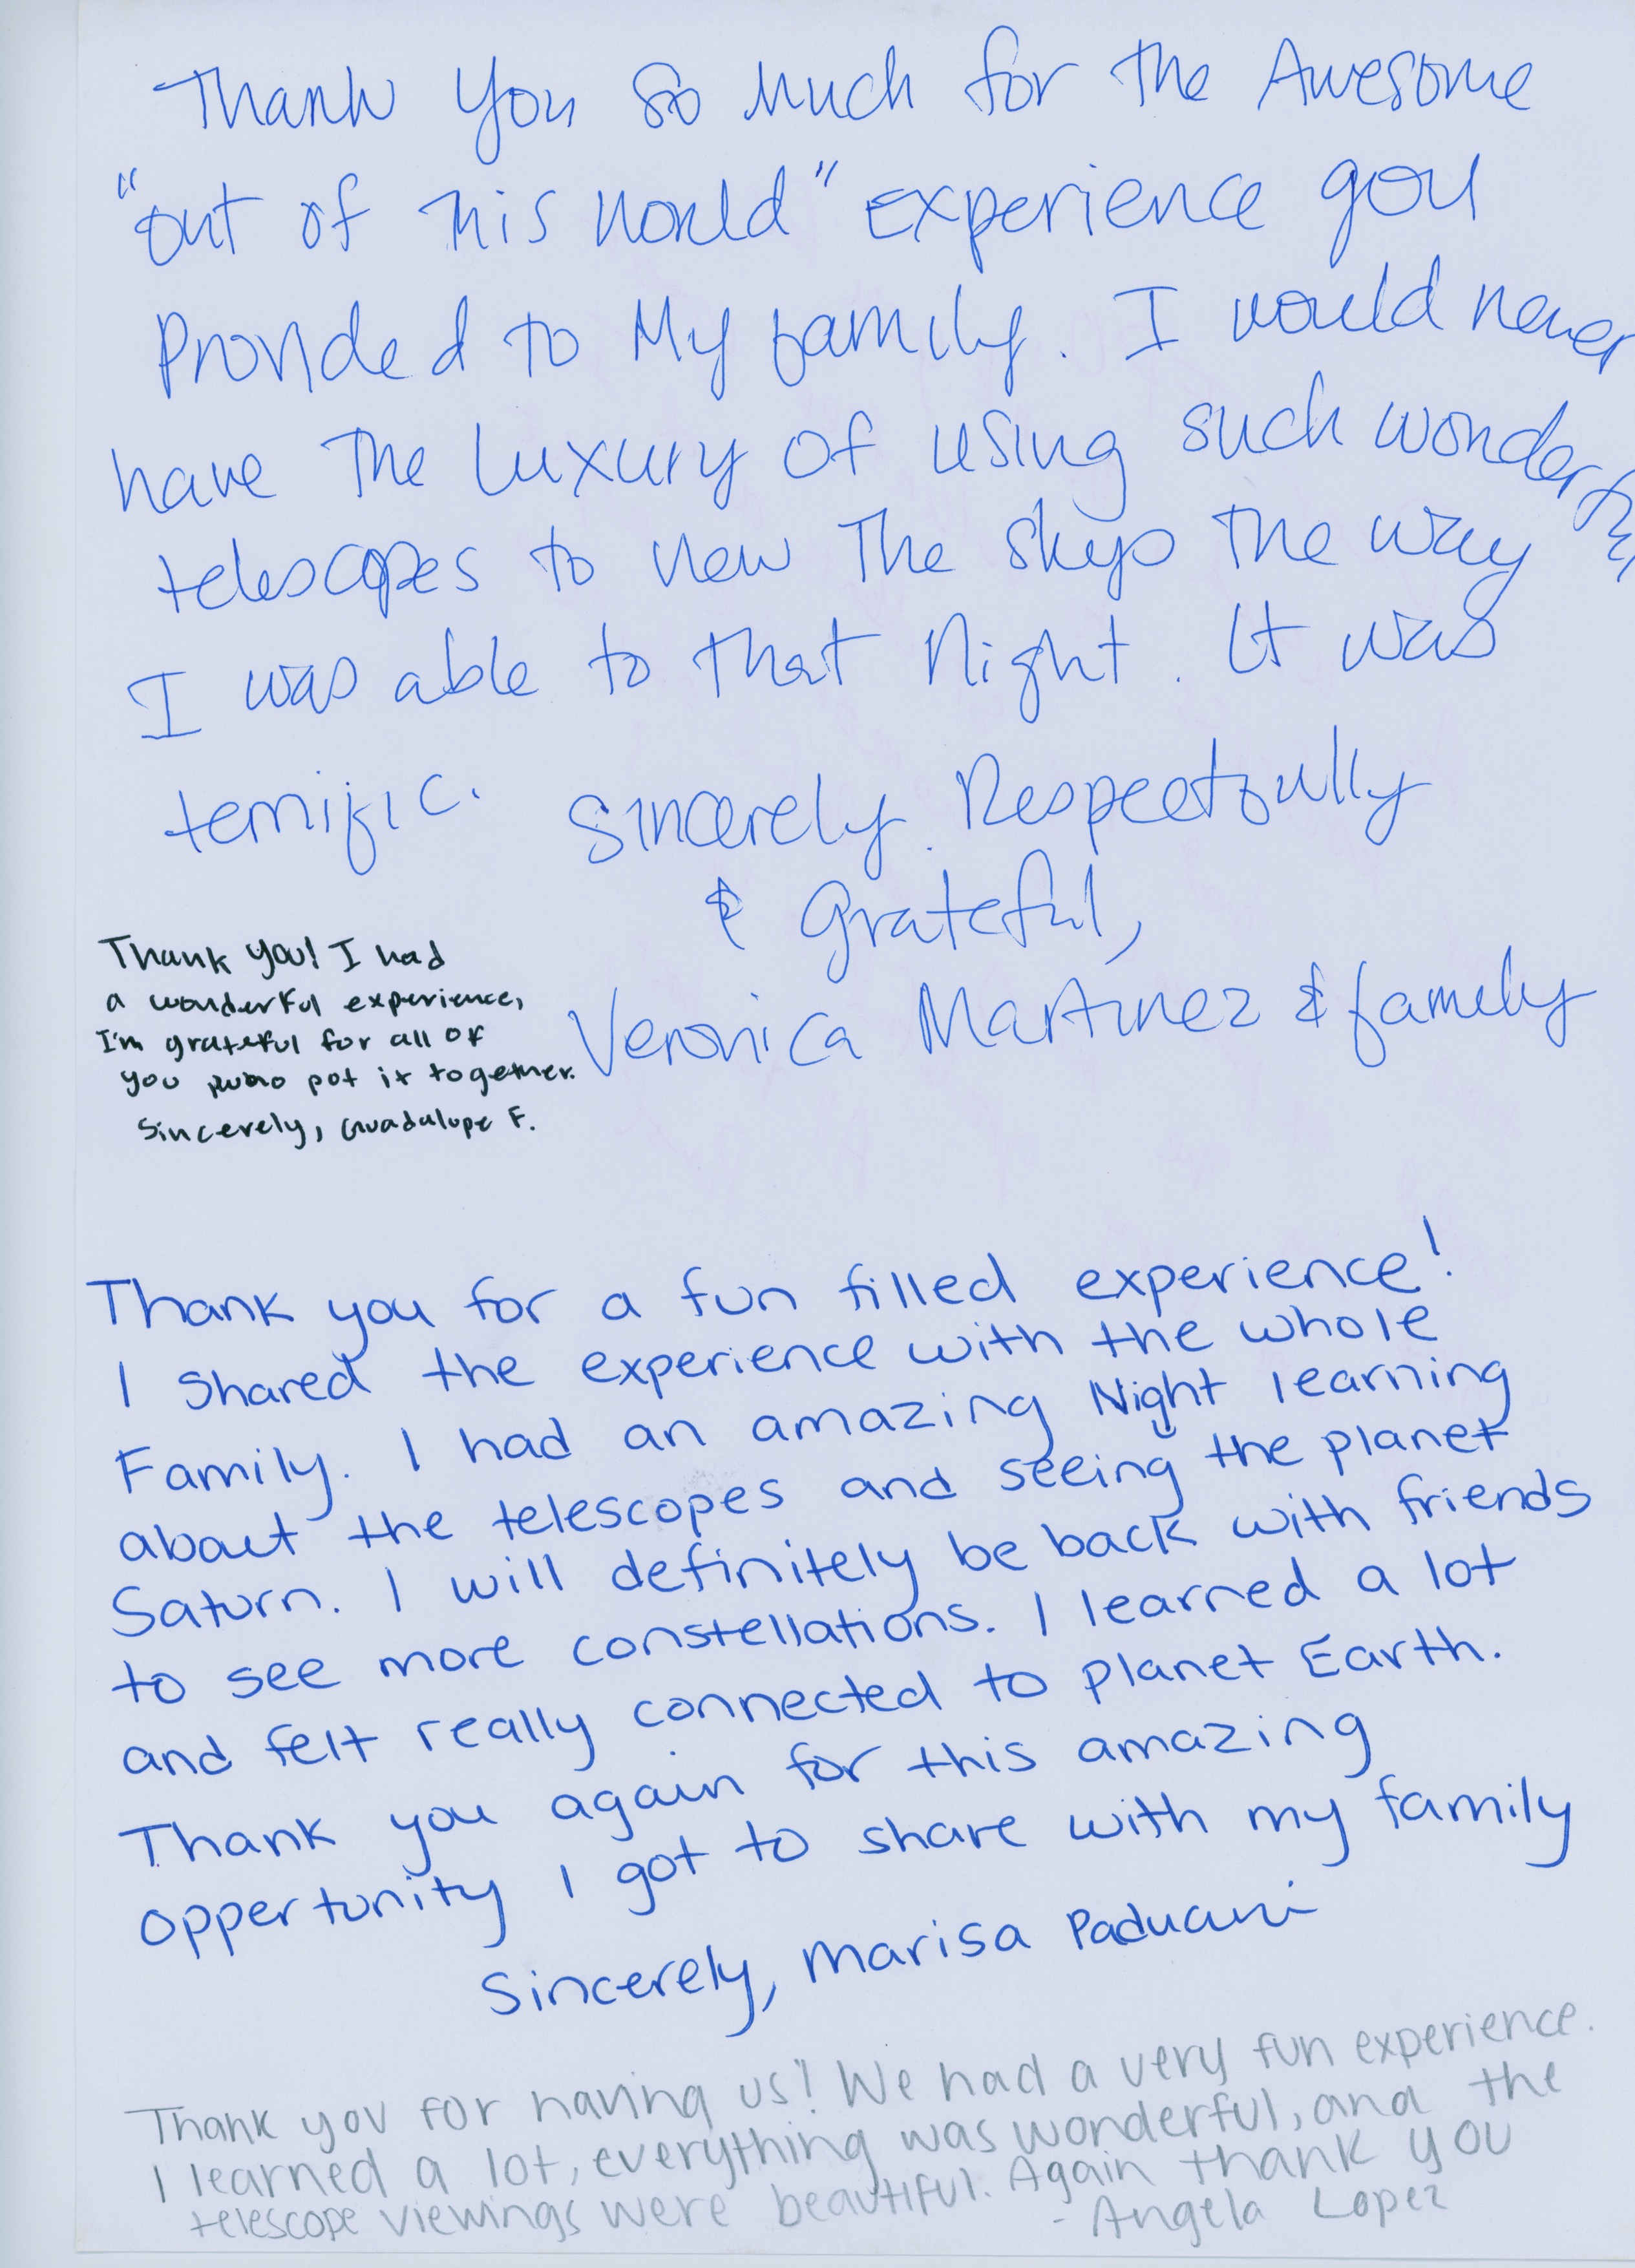 Thank you so Much for the Awesome
"out of this world" experience you
Provided to My family. I would never
have the Luxury of using such wonderful
telescopes to view the skys the way
I was able to that Night. It was
terrific. Sincerely Respectfully
& Grateful,
Veronica Martinez & family
Thank you! I had
a wonderful experience,
I'm grateful for all of
you who put it together.
Sincerely, Guadalupe F.
Thank you for a fun filled experience!
I shared the experience with the whole
Family. I had an amazing Night learning
about the telescopes and seeing the planet
Saturn. I will definitely be back with friends
to see more constellations. I learned a lot
and felt really connected to planet Earth.
Thank you again for this amazing
oppertunity I got to share with my family
Sincerely, Marisa Paduani
Thank you for having us! We had a very fun experience.
I learned a lot, everything was wonderful, and the
telescope viewings were beautiful. Again thank you
- Angela Lopez